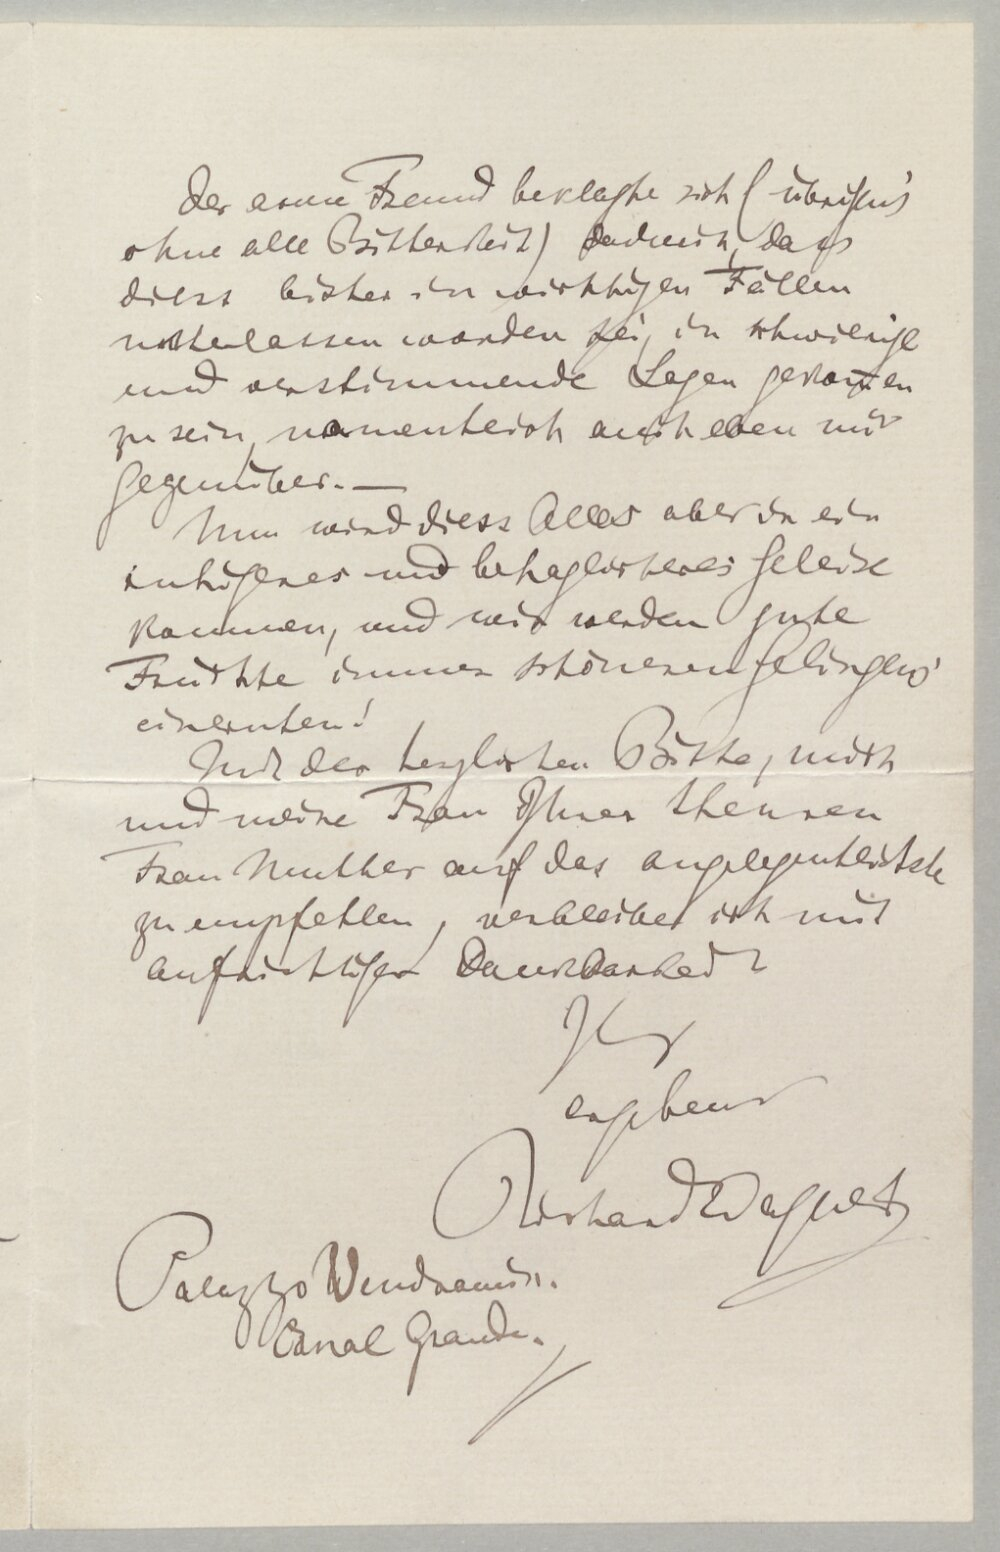 Der arme Freund beklagte sich (übrigens
ohne alle Bitterkeit) dadurch, dass
diess bisher in wichtigen Fällen
unterlassen worden sei, in schwierige
und verstimmende Lagen gerathen
zu sein, namentlich auch eben mir
gegenüber. —
Nun wird diess Alles aber in ein
ruhigeres und behaglicheres Geleise
kommen, und wir werden gute
Früchte immer schöneren Gelingens
einernten!
Mit der herzlichen Bitte, mich
und meine Frau Ihrer theuren
Frau Mutter auf das angelegentlichste
zu empfehlen, verbleibe ich mit
aufrichtiger Dankbarkeit
Ihr
ergebener
Richard Wagner
Palazzo Vendramin.
Canal Grande.